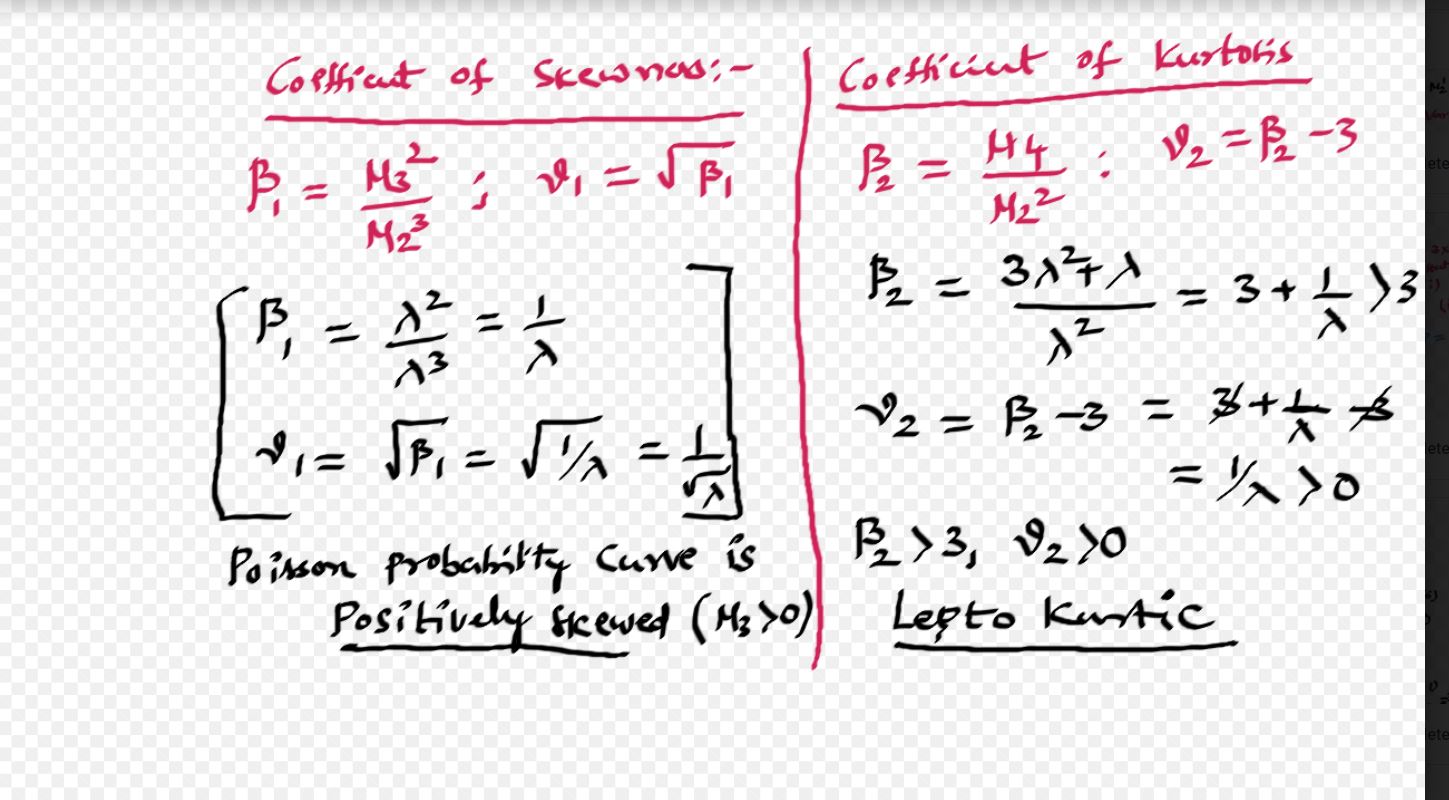 Coefficient of Skewness:-
β₁ = μ₃²/μ₂³ ; γ₁ = √β₁
β₁ = λ²/λ³ = 1/λ
γ₁ = √β₁ = √1/λ = 1/√λ
Poisson probability Curve is
Positively skewed (μ₃>0)
Coefficient of Kurtosis
β₂ = μ4/μ₂² : γ₂ = β₂ -3
β₂ = 3λ²+λ/λ² = 3 + 1/λ >3
γ₂ = β₂ -3 = 3+1/λ -3
= 1/λ >0
β₂ >3, γ₂ >0
Lepto Kurtic